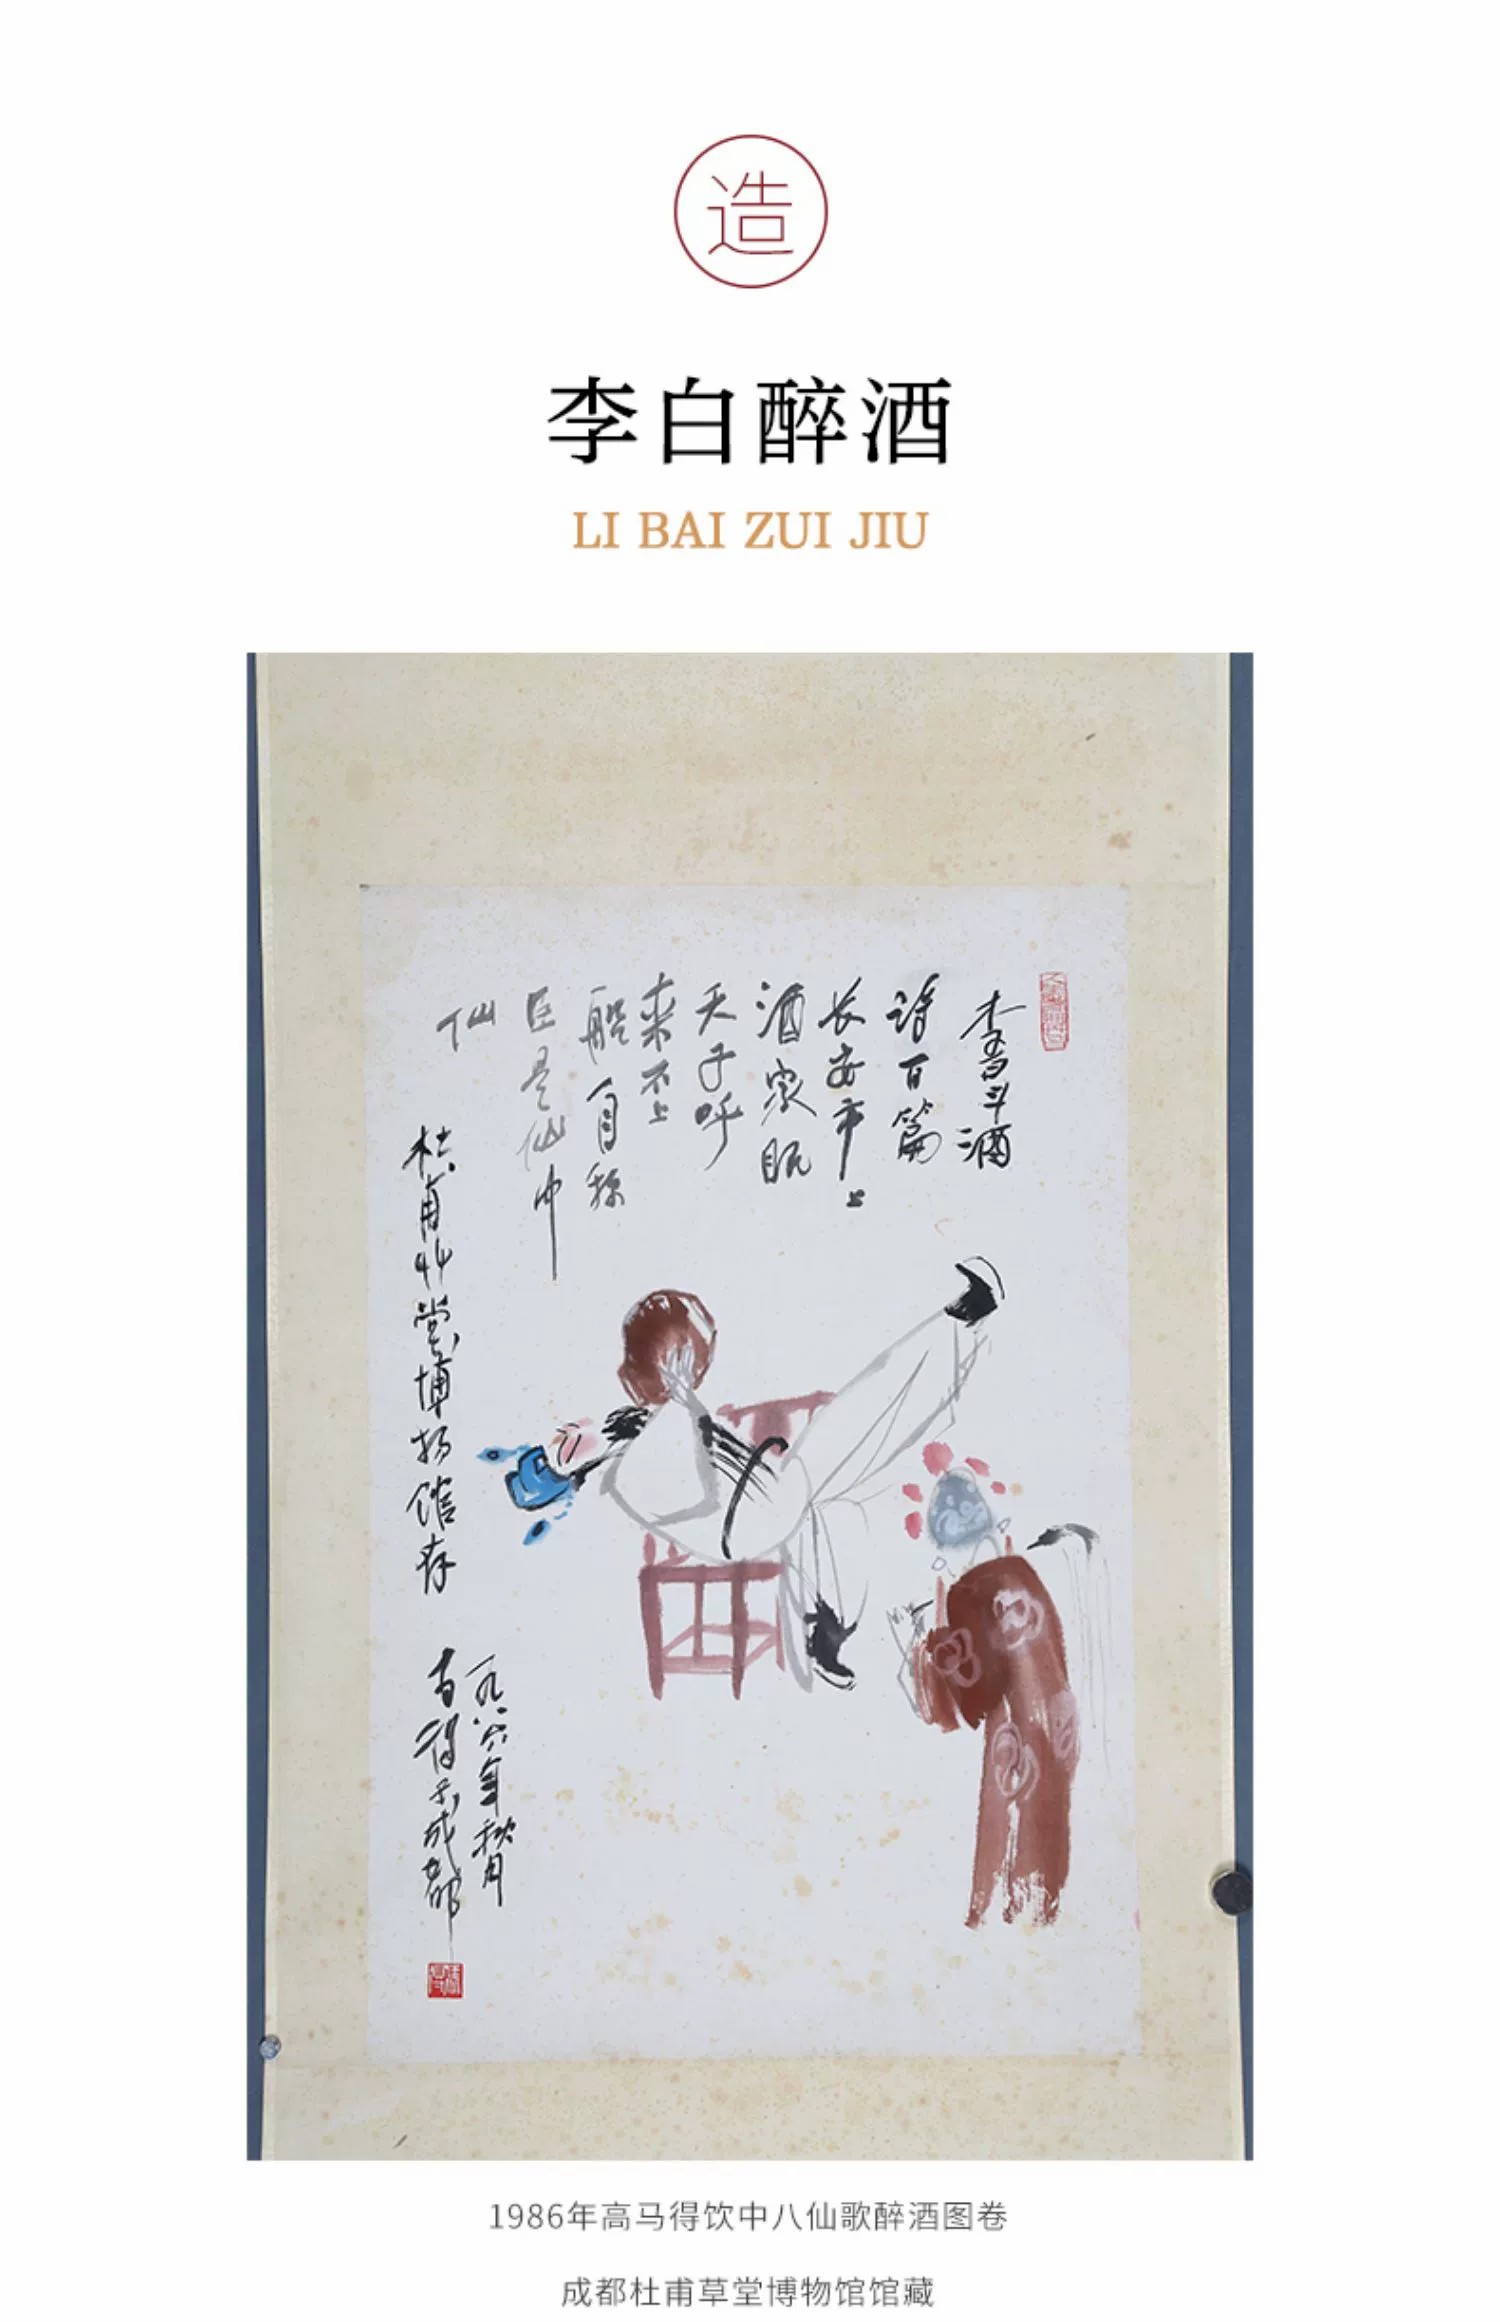 造
李白醉酒
LI BAI ZUI JIU
李白斗酒
诗百篇
长安市上
酒家眠
天子呼
来不上
船自称
臣是仙中
仙
杜甫草堂博物馆存
一九八六年秋月
高马得于成都
1986年高马得饮中八仙歌醉酒图卷
成都杜甫草堂博物馆馆藏